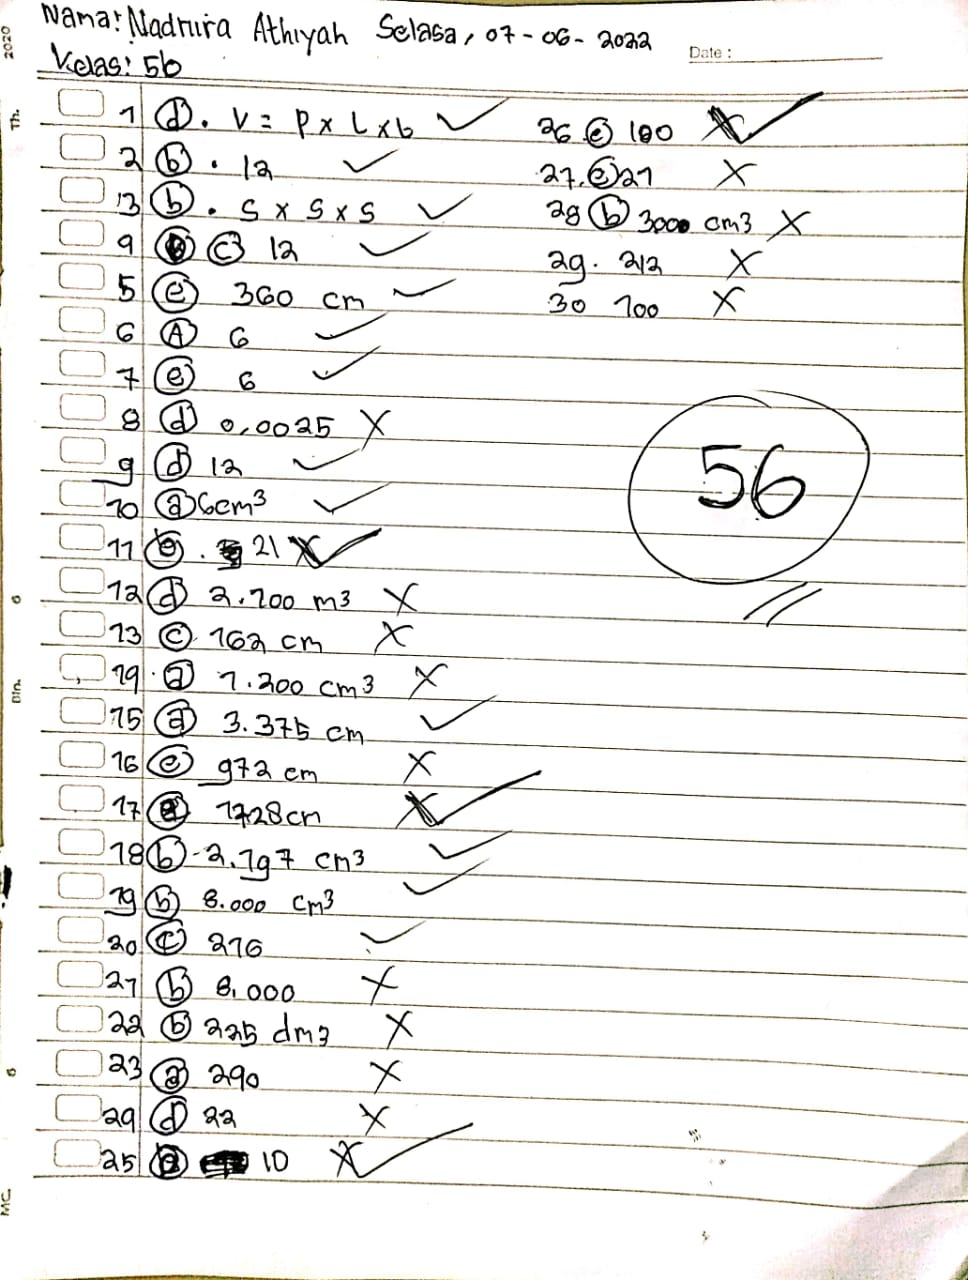 Nama: Nadhira Athiyah Selasa, 07-06-2022
Kelas: 5b
Date :
1 d. V = P x L x b ✓
2 b. 12 ✓
3 b. S x S x S ✓
4 c 12 ✓
5 e 360 cm ✓
6 A 6 ✓
7 e 6 ✓
8 d 0,0025 X
9 d 12 ✓
10 a 6cm³ ✓
11 . 21 ✓
12 d 2.700 m3 X
13 c. 162 cm X
14. a 1.200 cm3 X
15 a 3.375 cm ✓
16 e 972 cm X
17 1728 cm ✓
18 b - 2.197 cm3 ✓
19 b 8.000 cm3 ✓
20 c 216 ✓
21 b 8.000 X
22 b 225 dm3 X
23 a 240 X
24 d 22 X
25 10 ✓
26 e 100 ✓
27. e 21 X
28 b 3000 cm3 X
29. 212 X
30 700 X
56
2020
Th.
6
Bln.
6
MC